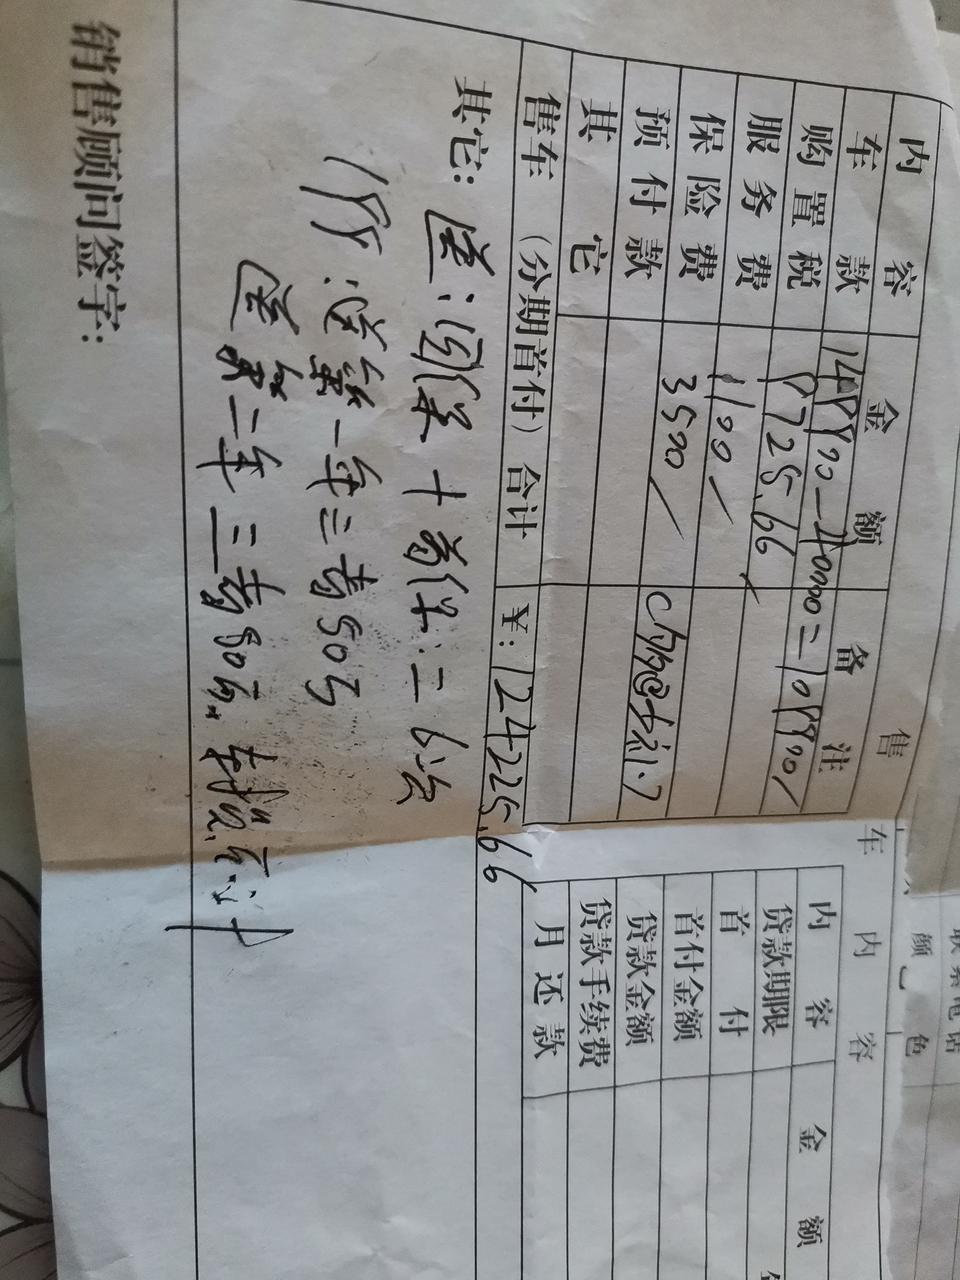 联系电话
颜色
售 车 内 容
内容 金额 备注
车款 149900-40000=109900/
购置税 9725.66
服务费 1100/
保险费 3500/
预付款
其它
售车(分期首付)合计 ¥:124225.66
其它: 送:
送第一年三者50万
送第二年三者50万.
销售顾问签字:
内容 金额
贷款期限
首付
首付金额
贷款金额
贷款手续费
月还款